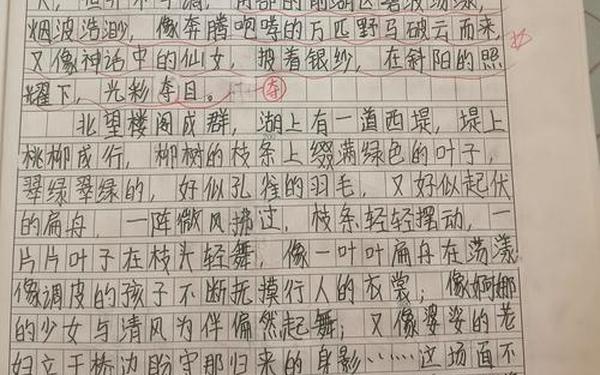 烟波浩渺,像奔腾咆哮的万匹野马破云而来,
又像神话中的仙女,披着银纱,在斜阳的照
耀下,光彩夺目。
北望楼阁成群,湖上有一道西堤,堤上
桃柳成行,柳树的枝条上缀满绿色的叶子,
翠绿翠绿的,好似孔雀的羽毛,又好似起伏
的扁舟,一阵微风拂过,枝条轻轻摆动,一
片片叶子在枝头轻舞,像一叶叶扁舟在荡漾
像调皮的孩子不断抚摸行人的衣裳;像婀娜
的少女与清风为伴偏然起舞;又像婆娑的老
妇立于桥边盼守那归来的身影……这场面不